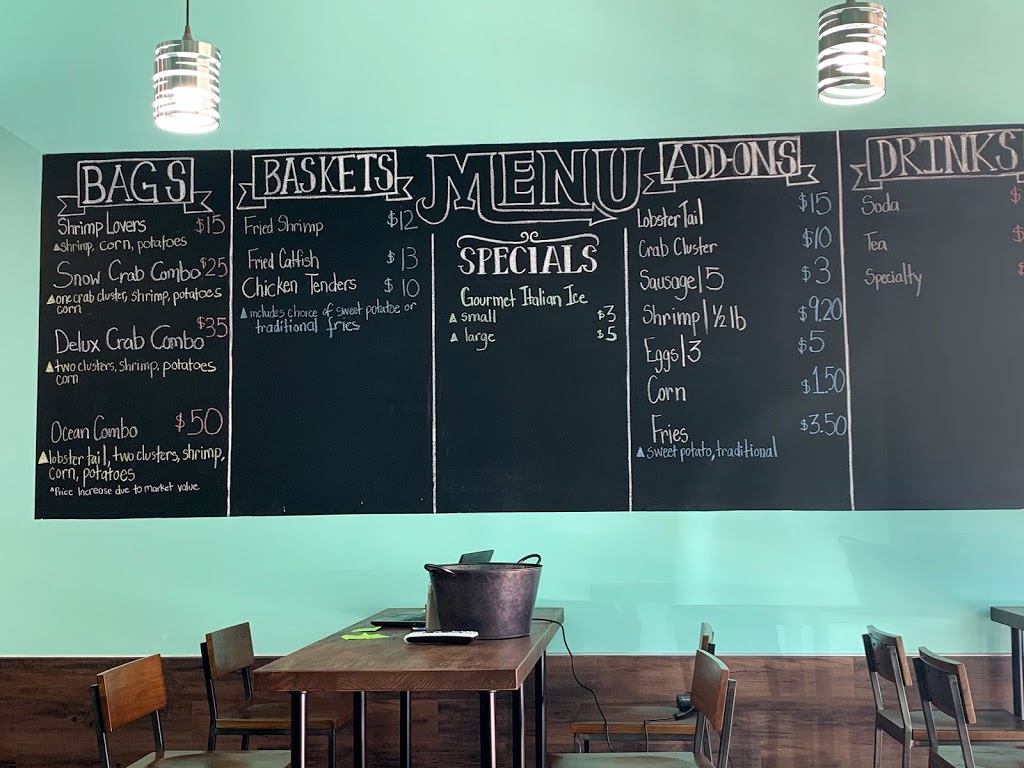 BAGS
Shrimp Lovers $15
▲shrimp, corn, potatoes
Snow Crab Combo $25
▲one crab cluster, shrimp, potatoes
corn
Delux Crab Combo $35
▲two clusters, shrimp, potatoes
corn
Ocean Combo $50
▲lobster tail, two clusters, shrimp,
corn, potatoes
▲Price Increase due to market value
BASKETS
Fried Shrimp $12
Fried Catfish $13
Chicken Tenders $10
▲includes choice of sweet potatoe or
traditional fries
MENU
SPECIALS
Gourmet Italian Ice
▲small $3
▲large $5
ADD-ONS
Lobster Tail $15
Crab Cluster $10
Sausage|5 $3
Shrimp|½ lb $9.20
Eggs|3 $5
Corn $1.50
Fries $3.50
▲sweet potato, traditional
DRINKS
Soda $
Tea $
Specialty $